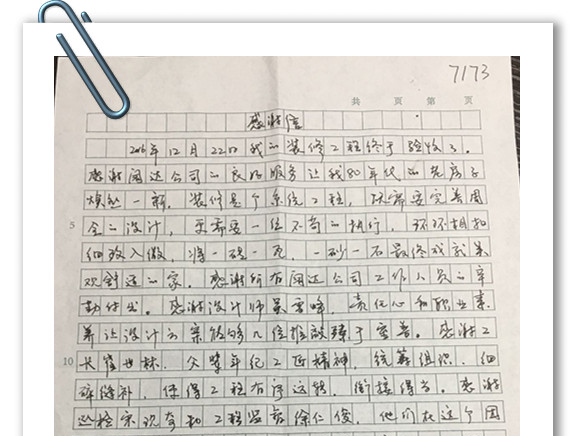 7173
共 页 第 页
感谢信
2016年12月22日我的装修工程终于验收了。
感谢阔达公司的良好服务让我80年代的老房子
焕然一新。装修是个系统工程,既需要完善周
5 全的设计,更需要一丝不苟的执行,环环相扣
细致入微,将一砖一瓦,一砂一石最终成就美
观舒适的家。感谢所有阔达公司工作人员的辛
勤付出。感谢设计师吴雪峰,责任心和职业素
养让设计方案能够几经推敲臻于完善。感谢工
10 长崔世林,父辈年纪工匠精神,统筹组织,细
碎缝补,使得工程有序运转,衔接得当。感谢
巡检宋现奇和工程监察徐仁俊,他们在这个团